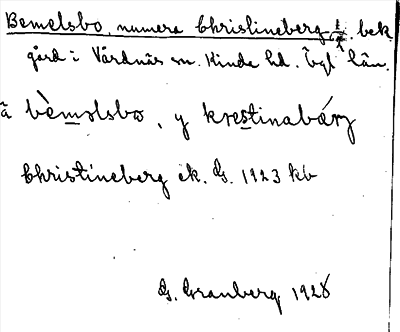 Bemelsbo, numera Christineberg 1/4 bek.
gård i Vårdnäs sn. Kinda hd. Ögl län.
ä bèmolsbo, y krestinabárg
Christineberg ek. G. 1923 kb
G. Granberg 1928